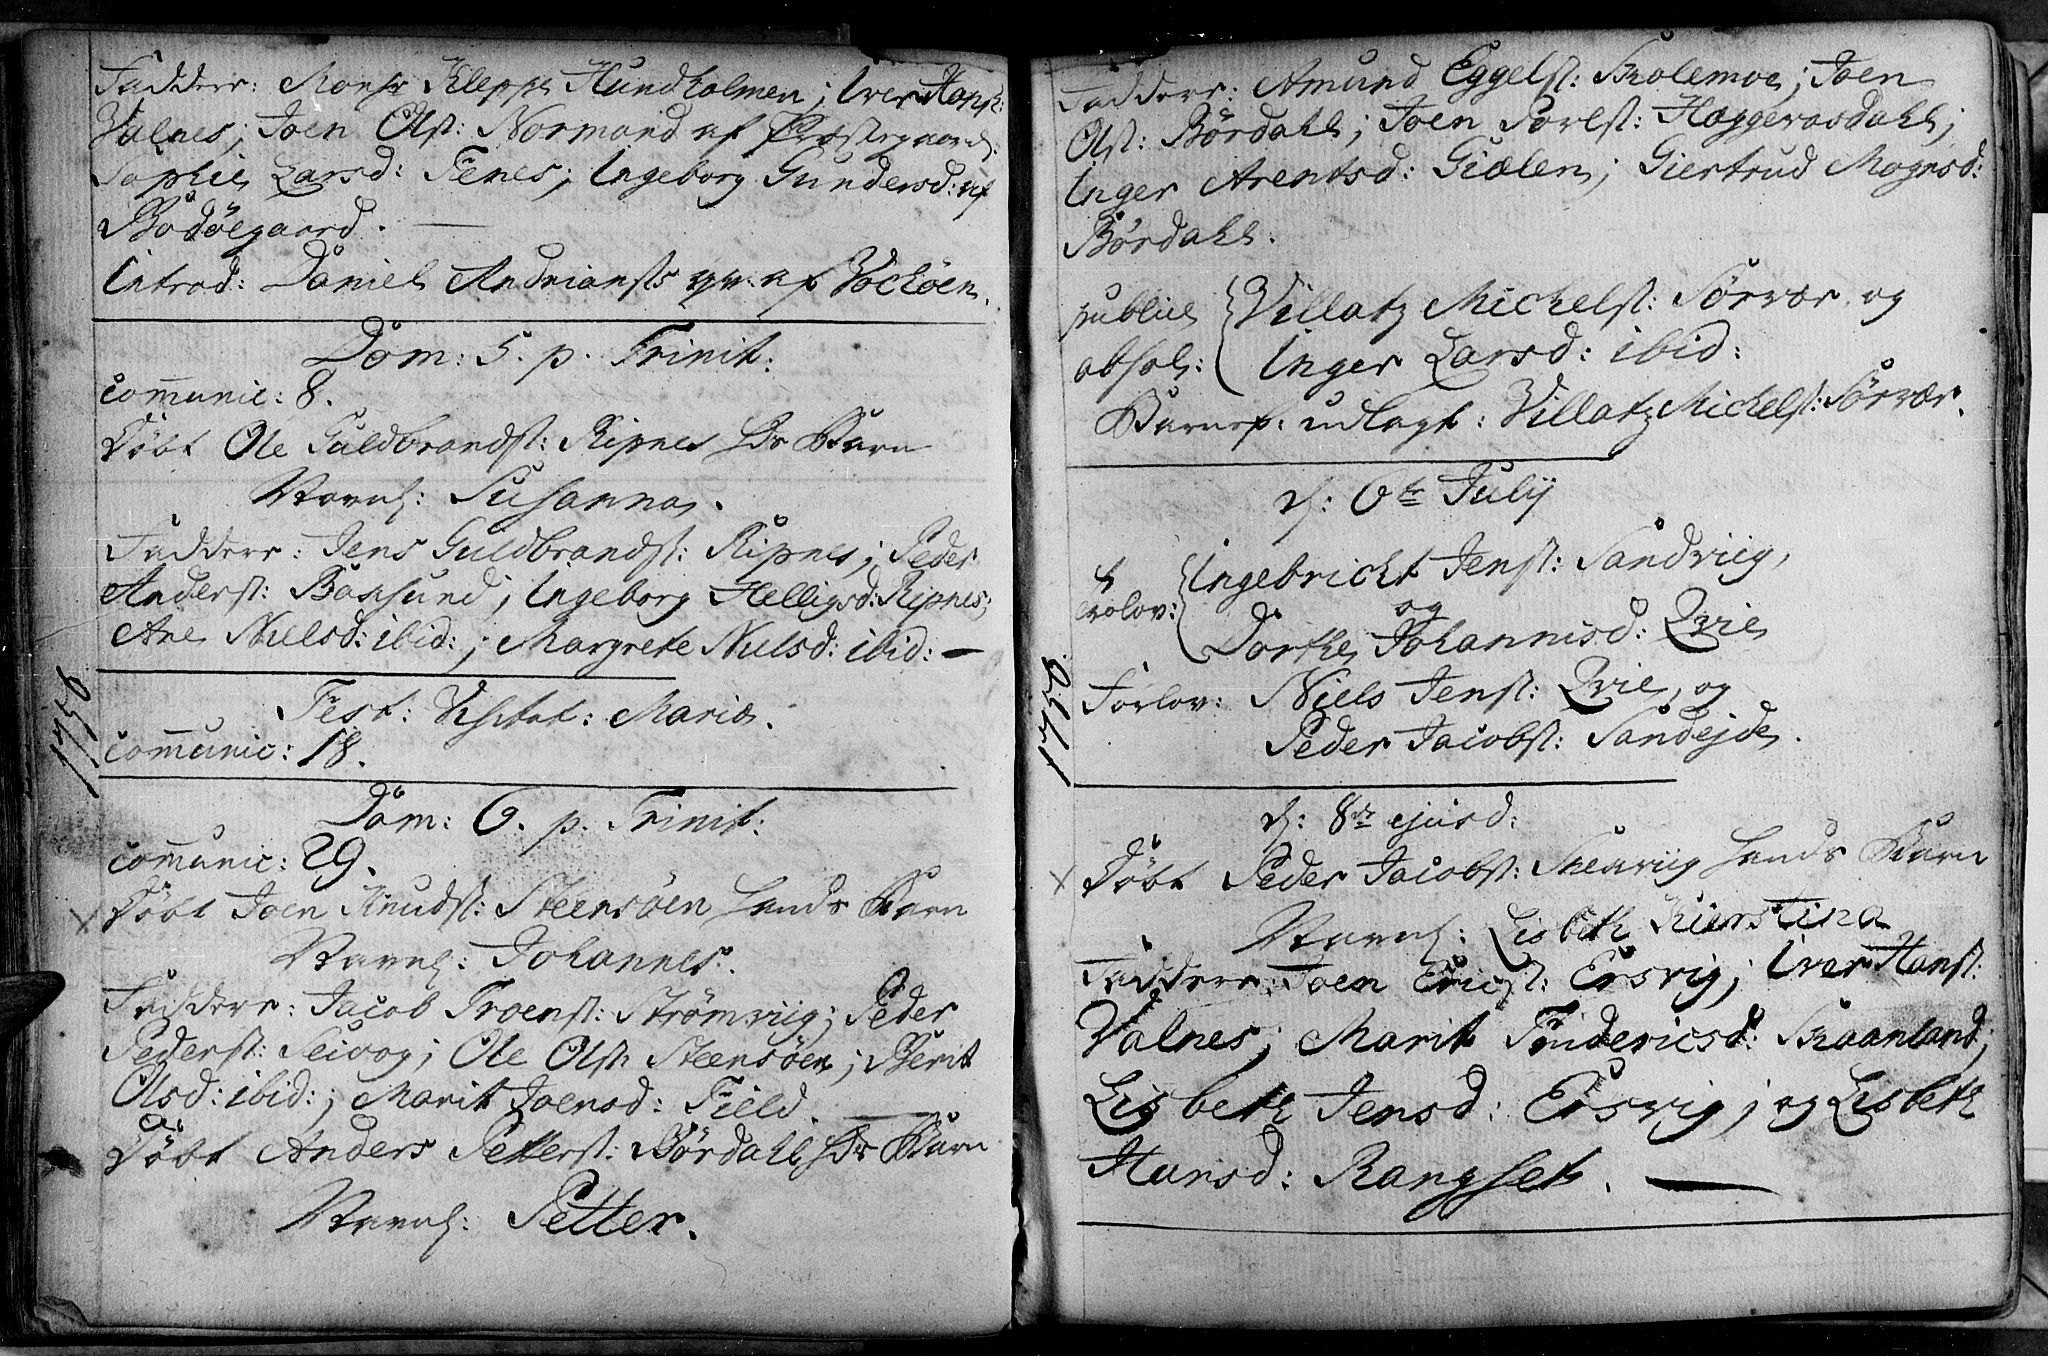 Faddere: Monsr Klepp Hundholmen; Iver Hans:
Valnes; Joen Olst: Normand af Præstegaard:
Sophie Larsd: Fenes; Ingeborg Gundersd: af
Bodöegaard.
Introd: Daniel Andriansts qv. af
Dom: 5. p. Trinit:
communic: 8.
Döbt Ole Guldbrandst: Ripnes Hs Barn
Navnl: Susanna.
Faddere: Jens Guldbrandst: Ripnes; Peder
Anderst: Boxsund; Ingeborg Helligsd: Ripnes;
Ane Nielsd: ibid:; Margrete Nielsd: ibid: —
1758
Fest: Visitat: Mariæ.
communic: 18.
Dom: 6. p. Trinit:
communic: 29.
Döbt Joen Knudst: Steensöen Hands Barn
Navnl: Johannes.
Faddere: Jacob Troenst: Strömviig; Peder
Pederst: Seivog; Ole Olst: Steensöen; Berit
Olsd: ibid:; Marit Joensd: Field.
Döbt Anders Petterst: Bördahl Hs Barn
Navnl: Petter.
Faddere: Amund Eggelst: Skolemoe; Joen
Olst: Bördahl; Joen Porlst: Haggeraasdahl;
Inger Arentsd: Giælen; Giertrud Mognsd:
Bördahl.
publice absol: Villatz Michelst: Sörvær og
Inger Larsd: ibid:
Barnef: udlagt: Villatz Michelst: Sörvær.
d: 6te Julij
trolov: Ingebricht Jenst: Sandviig,
og
Dorthe Johannisd: Qvie
1758.
Forlov: Niels Jenst: Qvie, og
Peder Jacobst: Sandejde.
d: 8de ejusd:
Döbt Peder Jacobst: Skeiviig Hands Barn
Navnl: Lisbeth Kierstina
Faddere: Joen Ericst: Ersvig; Iver Hanst:
Valnes; Marit Fridericsd: Skaanland;
Lisbeth Jensd: Ersvig; og Lisbeth
Hansd: Rangset.